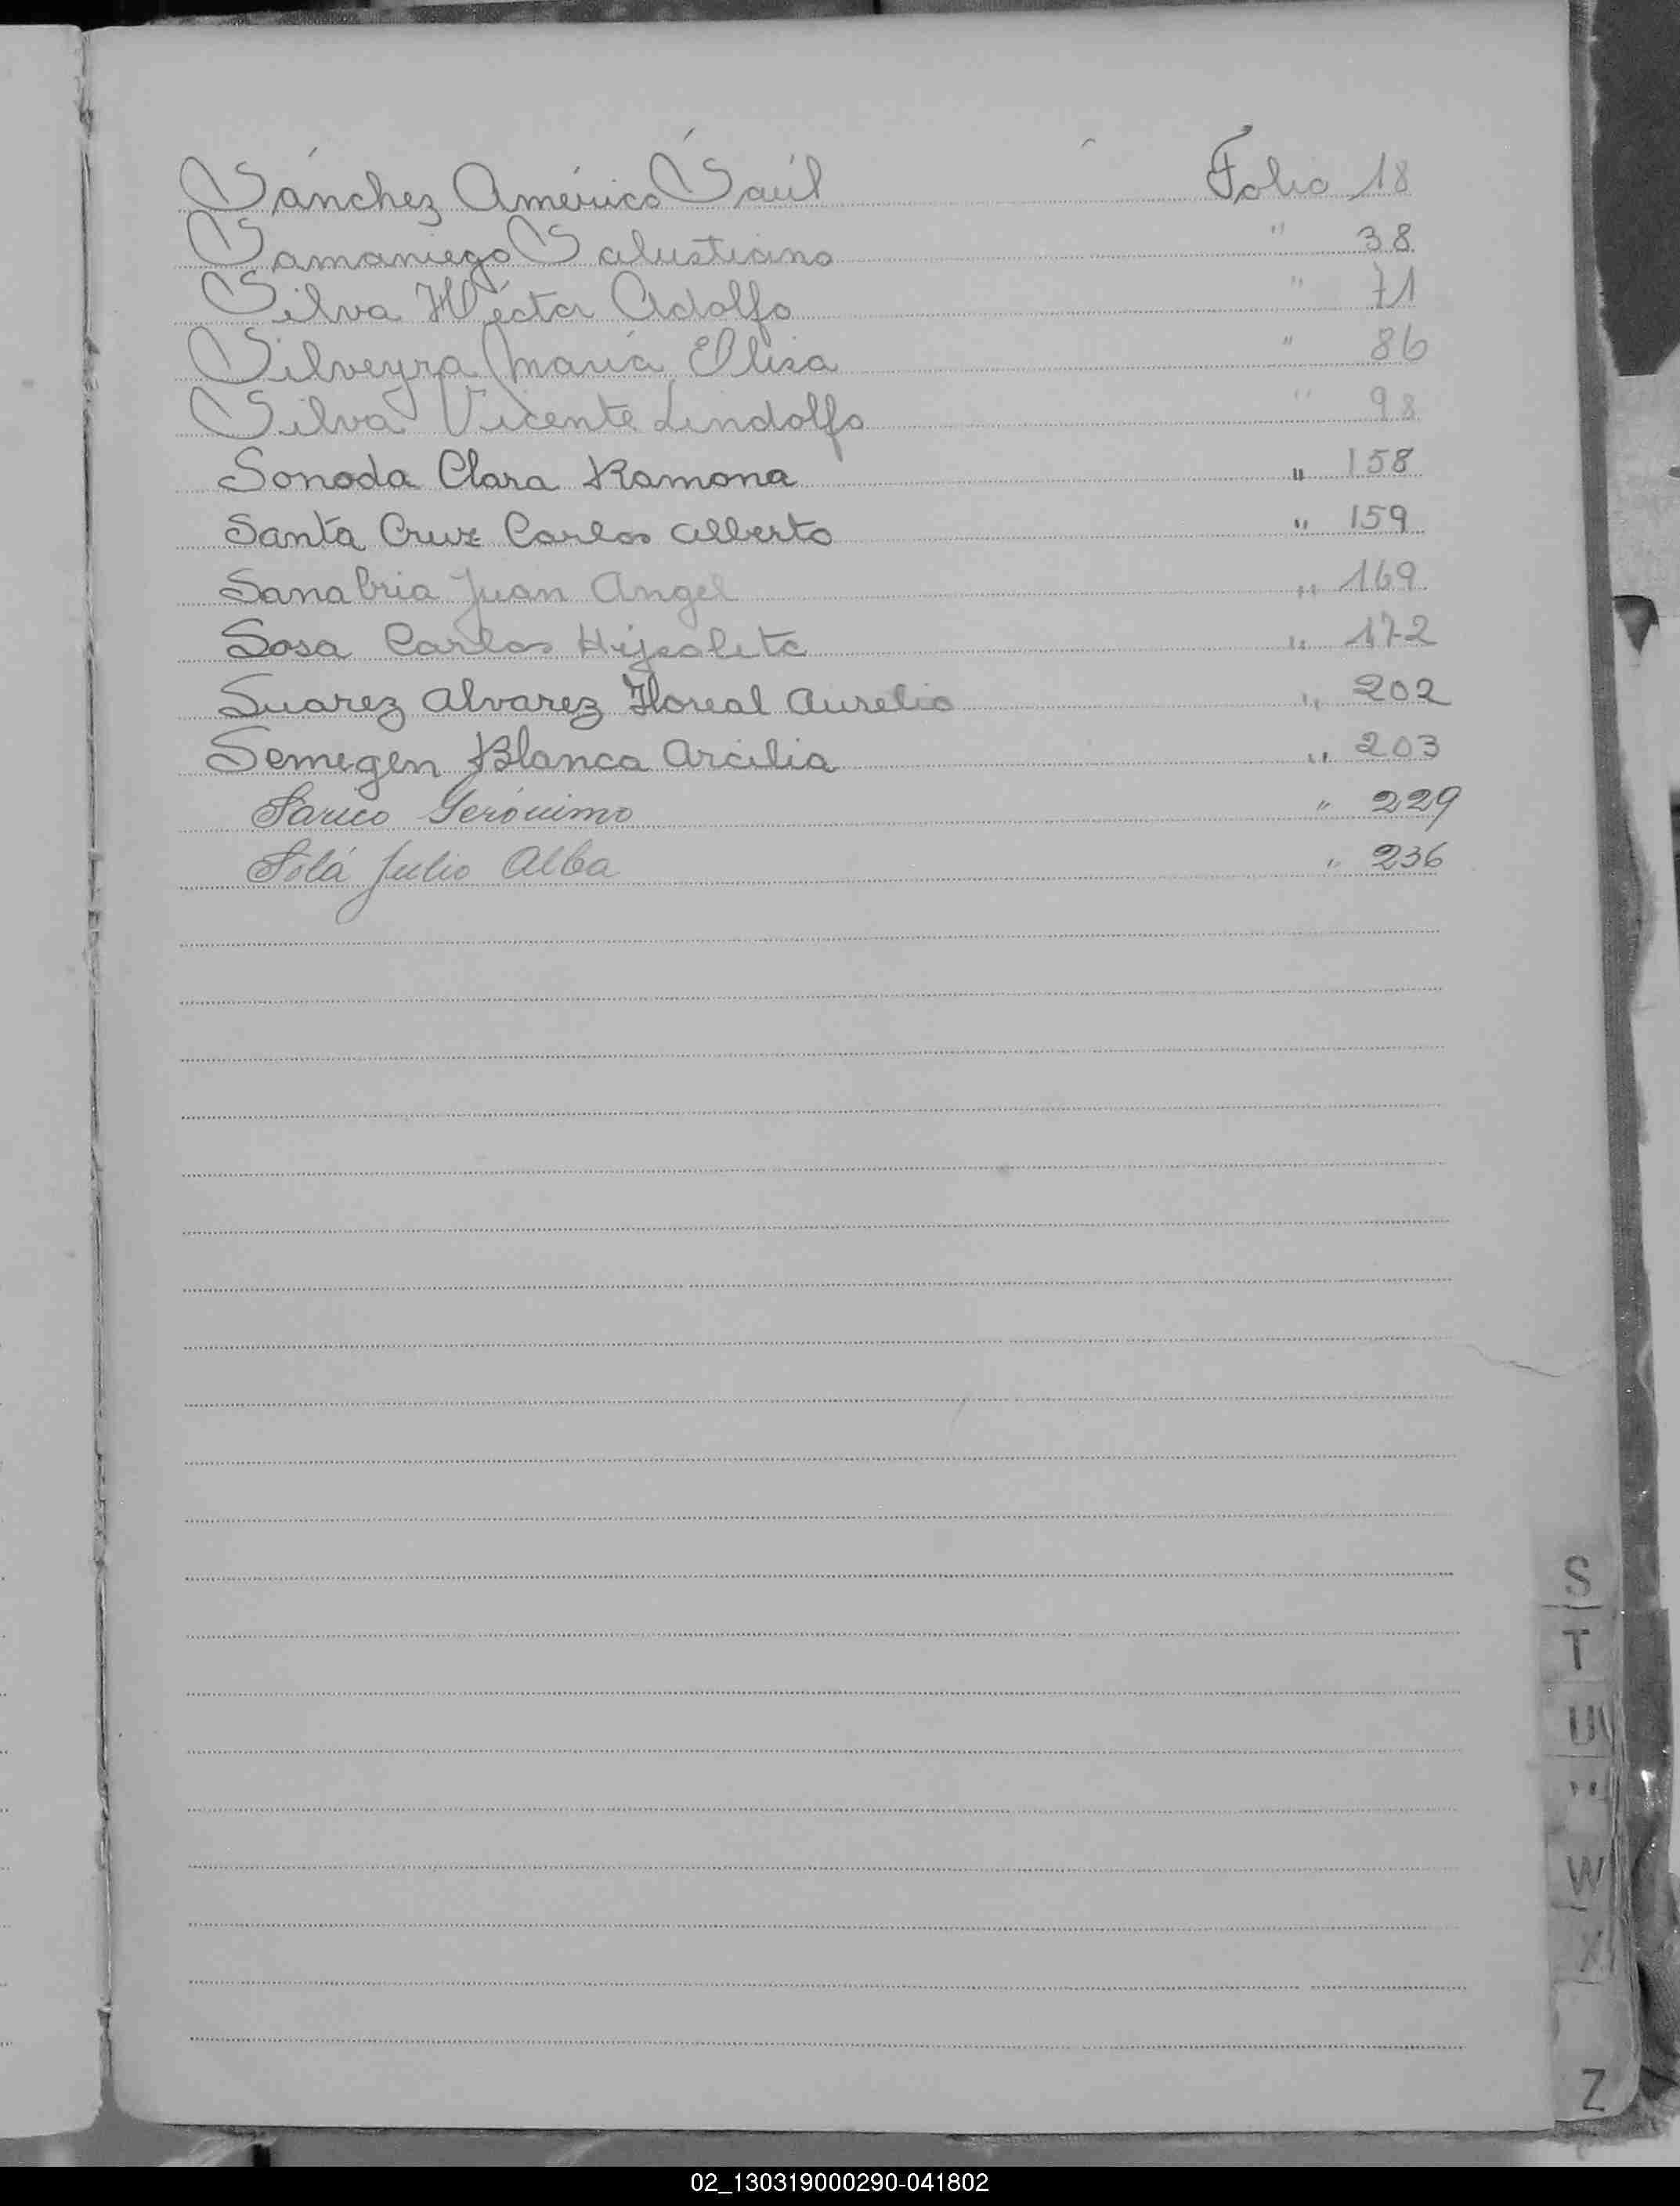 Sánchez Américo Saúl Folio 18
Samaniego Salustiano " 38
Silva Héctor Adolfo " 71
Silveyra María Elisa " 86
Silva Vicente Lindolfo " 98
Sonoda Clara Ramona " 158
Santa Cruz Carlos Alberto " 159
Sanabria Juan Angel " 169
Sosa Carlos Hipolito " 172
Suarez Alvarez Floreal Aurelio " 202
Semegen Blanca Arcilia " 203
Sarico Gerónimo " 229
Solá Julio Alba " 236
S
T
U
W
X
Z
02_130319000290-041802